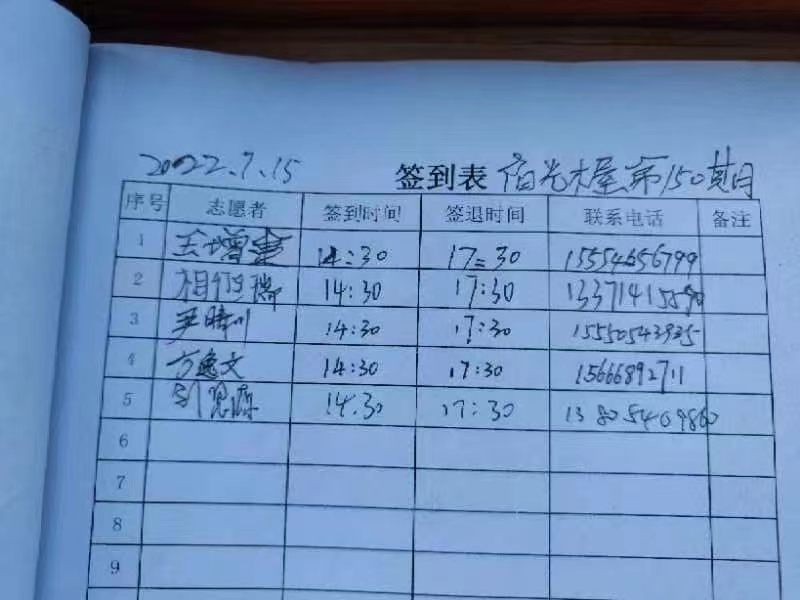 2022.7.15 签到表 阳光木屋第150期
序号 志愿者 签到时间 签退时间 联系电话 备注
1 王增 14:30 17:30 15554656799
2 相 瑞 14:30 17:30
3 14:30 17:30 15550543935
4 方逸文 14:30 17:30 15666892711
5 14.30 17:30 13805469860
6
7
8
9